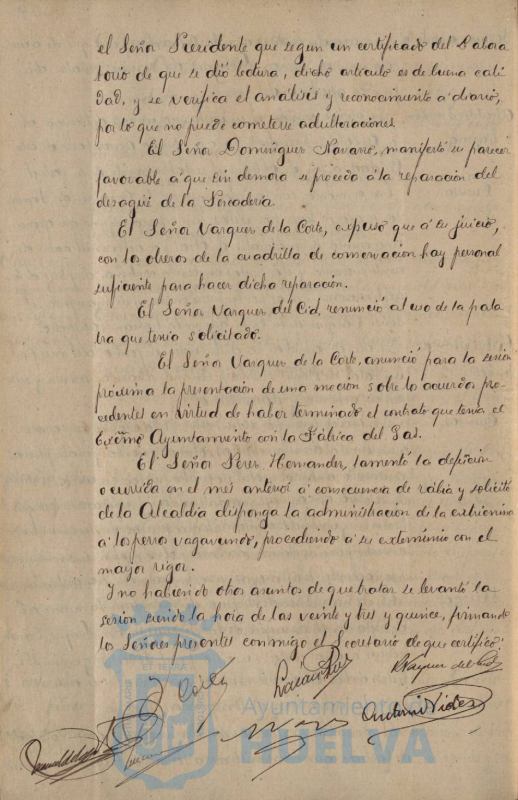 el Señor Presidente que segun un certificado del Labora
torio de que se dió lectura, dicho artículo es de buena cali
dad, y se verifica el análisis y reconocimiento a diario,
por lo que no puede cometerse adulteraciones.
El Señor Dominguez Navarro, manifestó su parecer
favorable a que sin demora se proceda á la reparación del
desagüe de la Pescaderia.
El Señor Vazquez de la Corte, expuso que a su juicio,
con los obreros de la cuadrilla de conservacion hay personal
suficiente para hacer dicha reparación.
El Señor Vazquez del Cid, renunció al uso de la pala
bra que tenia solicitado.
El Señor Vazquez de la Corte, anunció para la sesion
próxima la presentación de una moción sobre lo acuerdo pro
cedentes en virtud de haber terminado el contrato que tenia el
Excmo Ayuntamiento con la Fábrica del Gas.
El Señor Perez Hernandez, lamentó la defunción
ocurrida en el mes anterior a consecuencia de rabia y solicitó
de la Alcaldía disponga la administración de la extricnina
a los perros vagavundo, procediendo a su exterminio con el
mayor rigor.
Y no habiendo otros asuntos de que tratar se levantó la
sesion siendo la hora de las veinte y tres y quince, firmando
los Señores presentes conmigo el Secretario de que certifico:
Corte
Vazquez del Cid
Antonio
ET TERRA
Ayuntamiento de
HUELVA